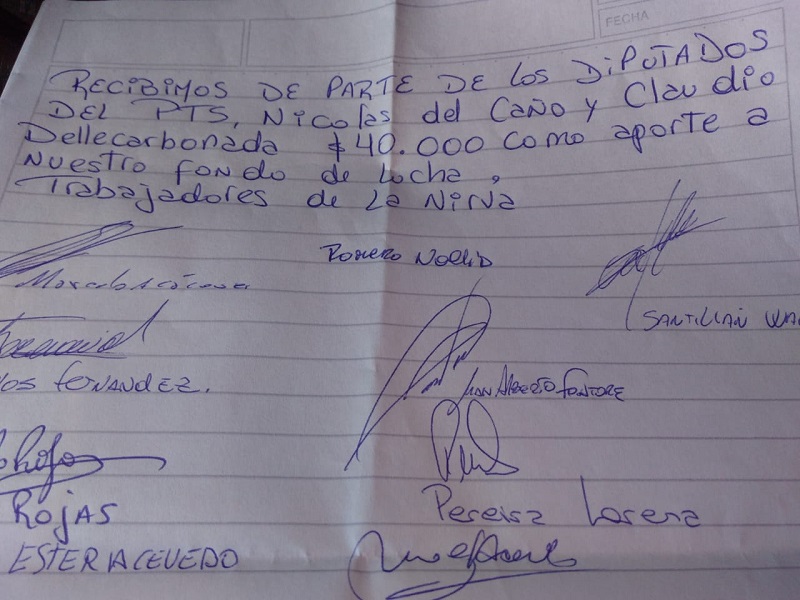 FECHA
RECIBIMOS DE PARTE DE LOS DIPUTADOS
DEL PTS, Nicolas del Caño y Claudio
Dellecarbonada $40.000 como aporte a
Nuestro fondo de Lucha,
Trabajadores de La Nirva
Romero Noelid
SANTILLAN WA
FERNANDEZ.
JUAN ALBERTO
ROJAS
Pereira Lorena
ESTER ACEVEDO